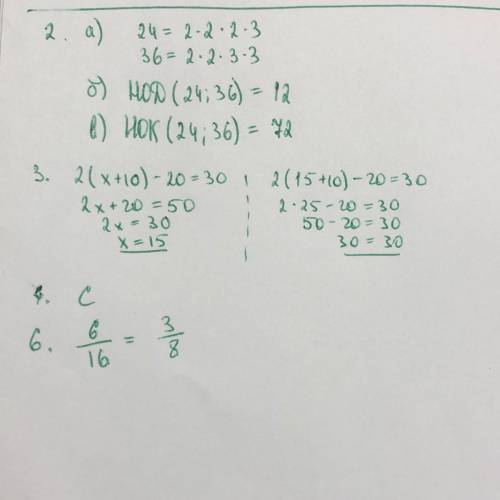 2. а) 24 = 2·2·2·3
36 = 2·2·3·3
б) НОД (24; 36) = 12
в) НОК (24; 36) = 72
3. 2(x+10) - 20 = 30
2x + 20 = 50
2x = 30
x = 15
2(15+10) - 20 = 30
2·25 - 20 = 30
50 - 20 = 30
30 = 30
4. C
6. 6/16 = 3/8